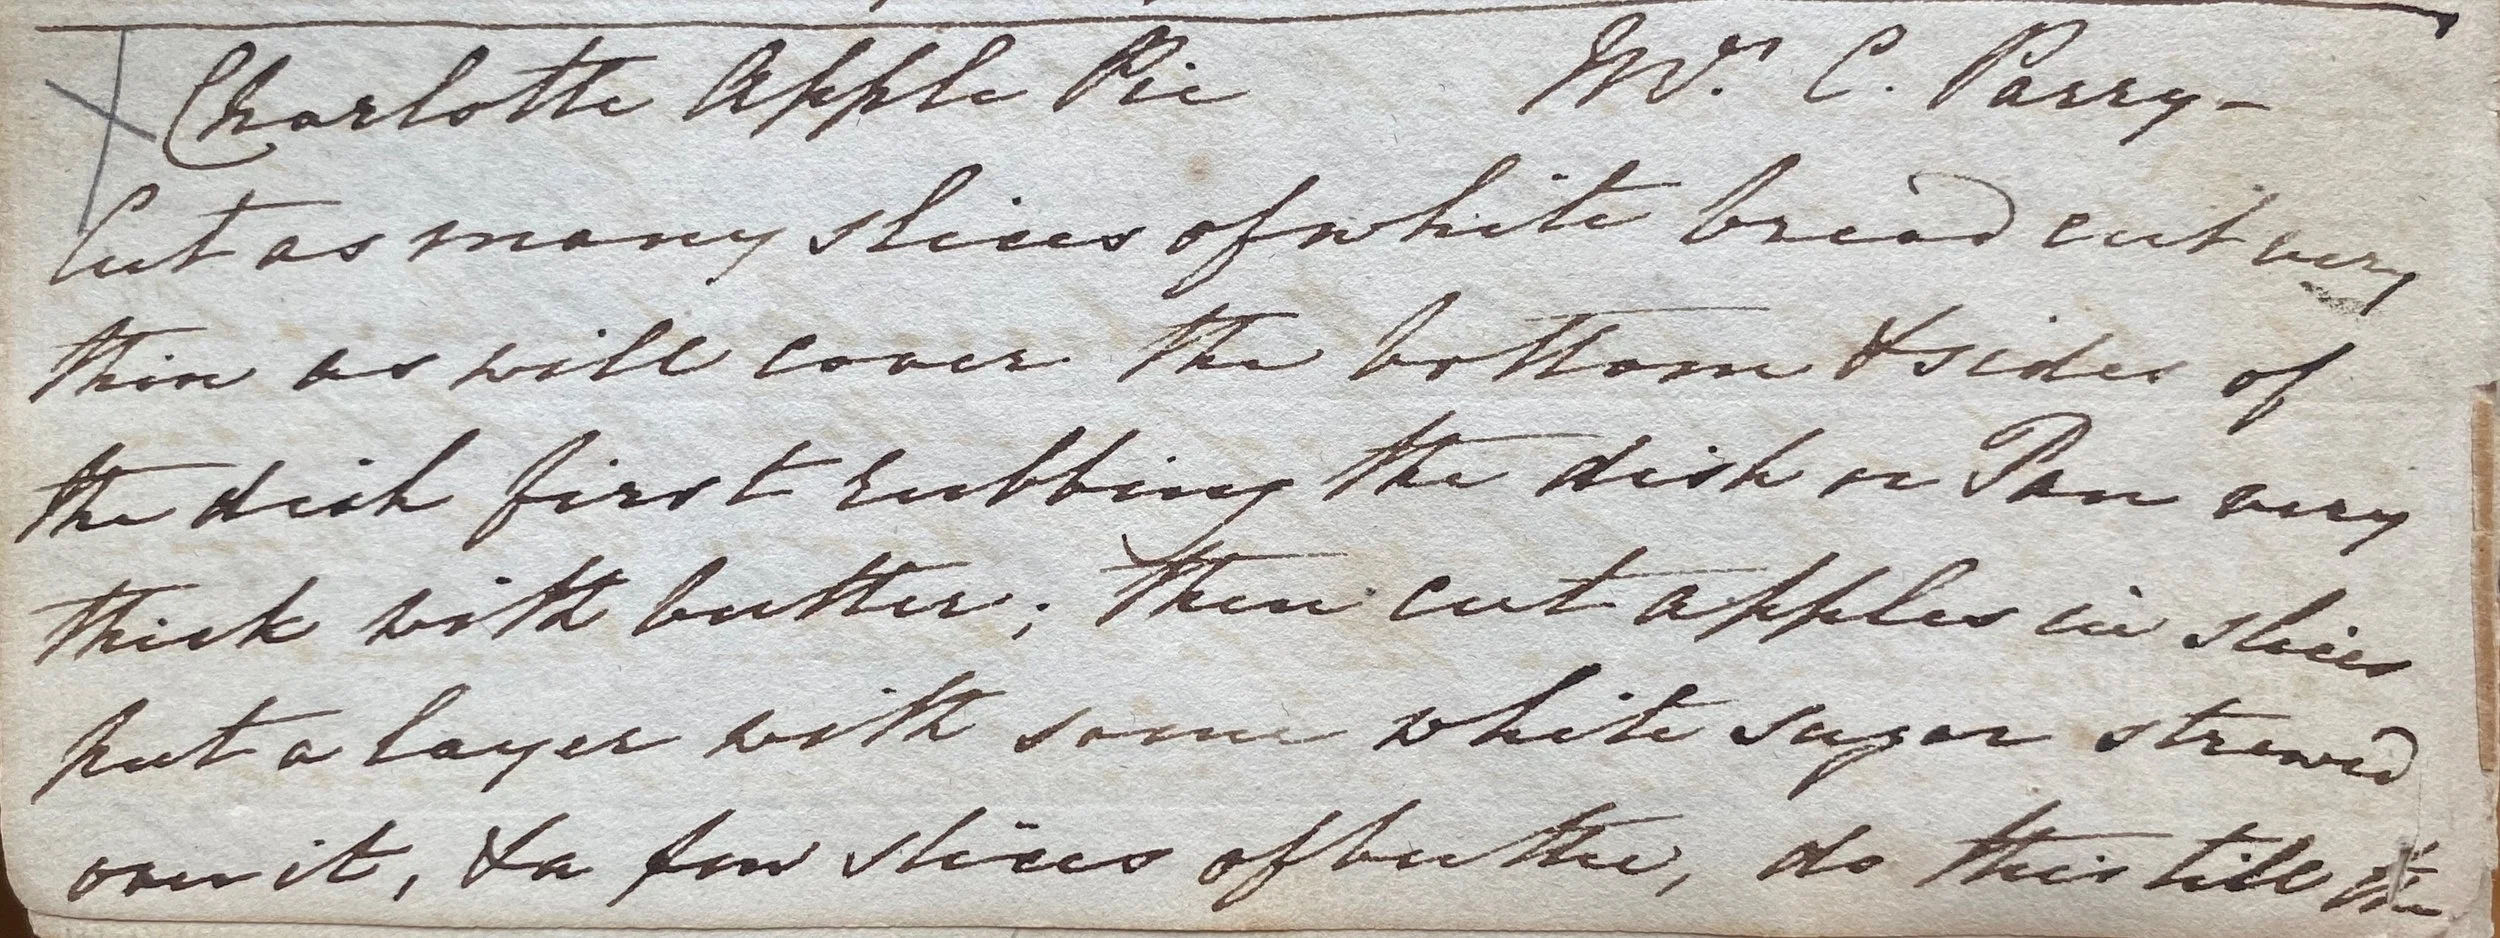 Charlotte Apple Pie Mrs. C. Parry-
Cut as many slices of white bread cut very
thin as will cover the bottom & sides of
the dish first rubbing the dish or Pan very
thick with butter; then cut apples in slices
put a layer with some white sugar strewed
over it, & a few slices of butter, do this till the